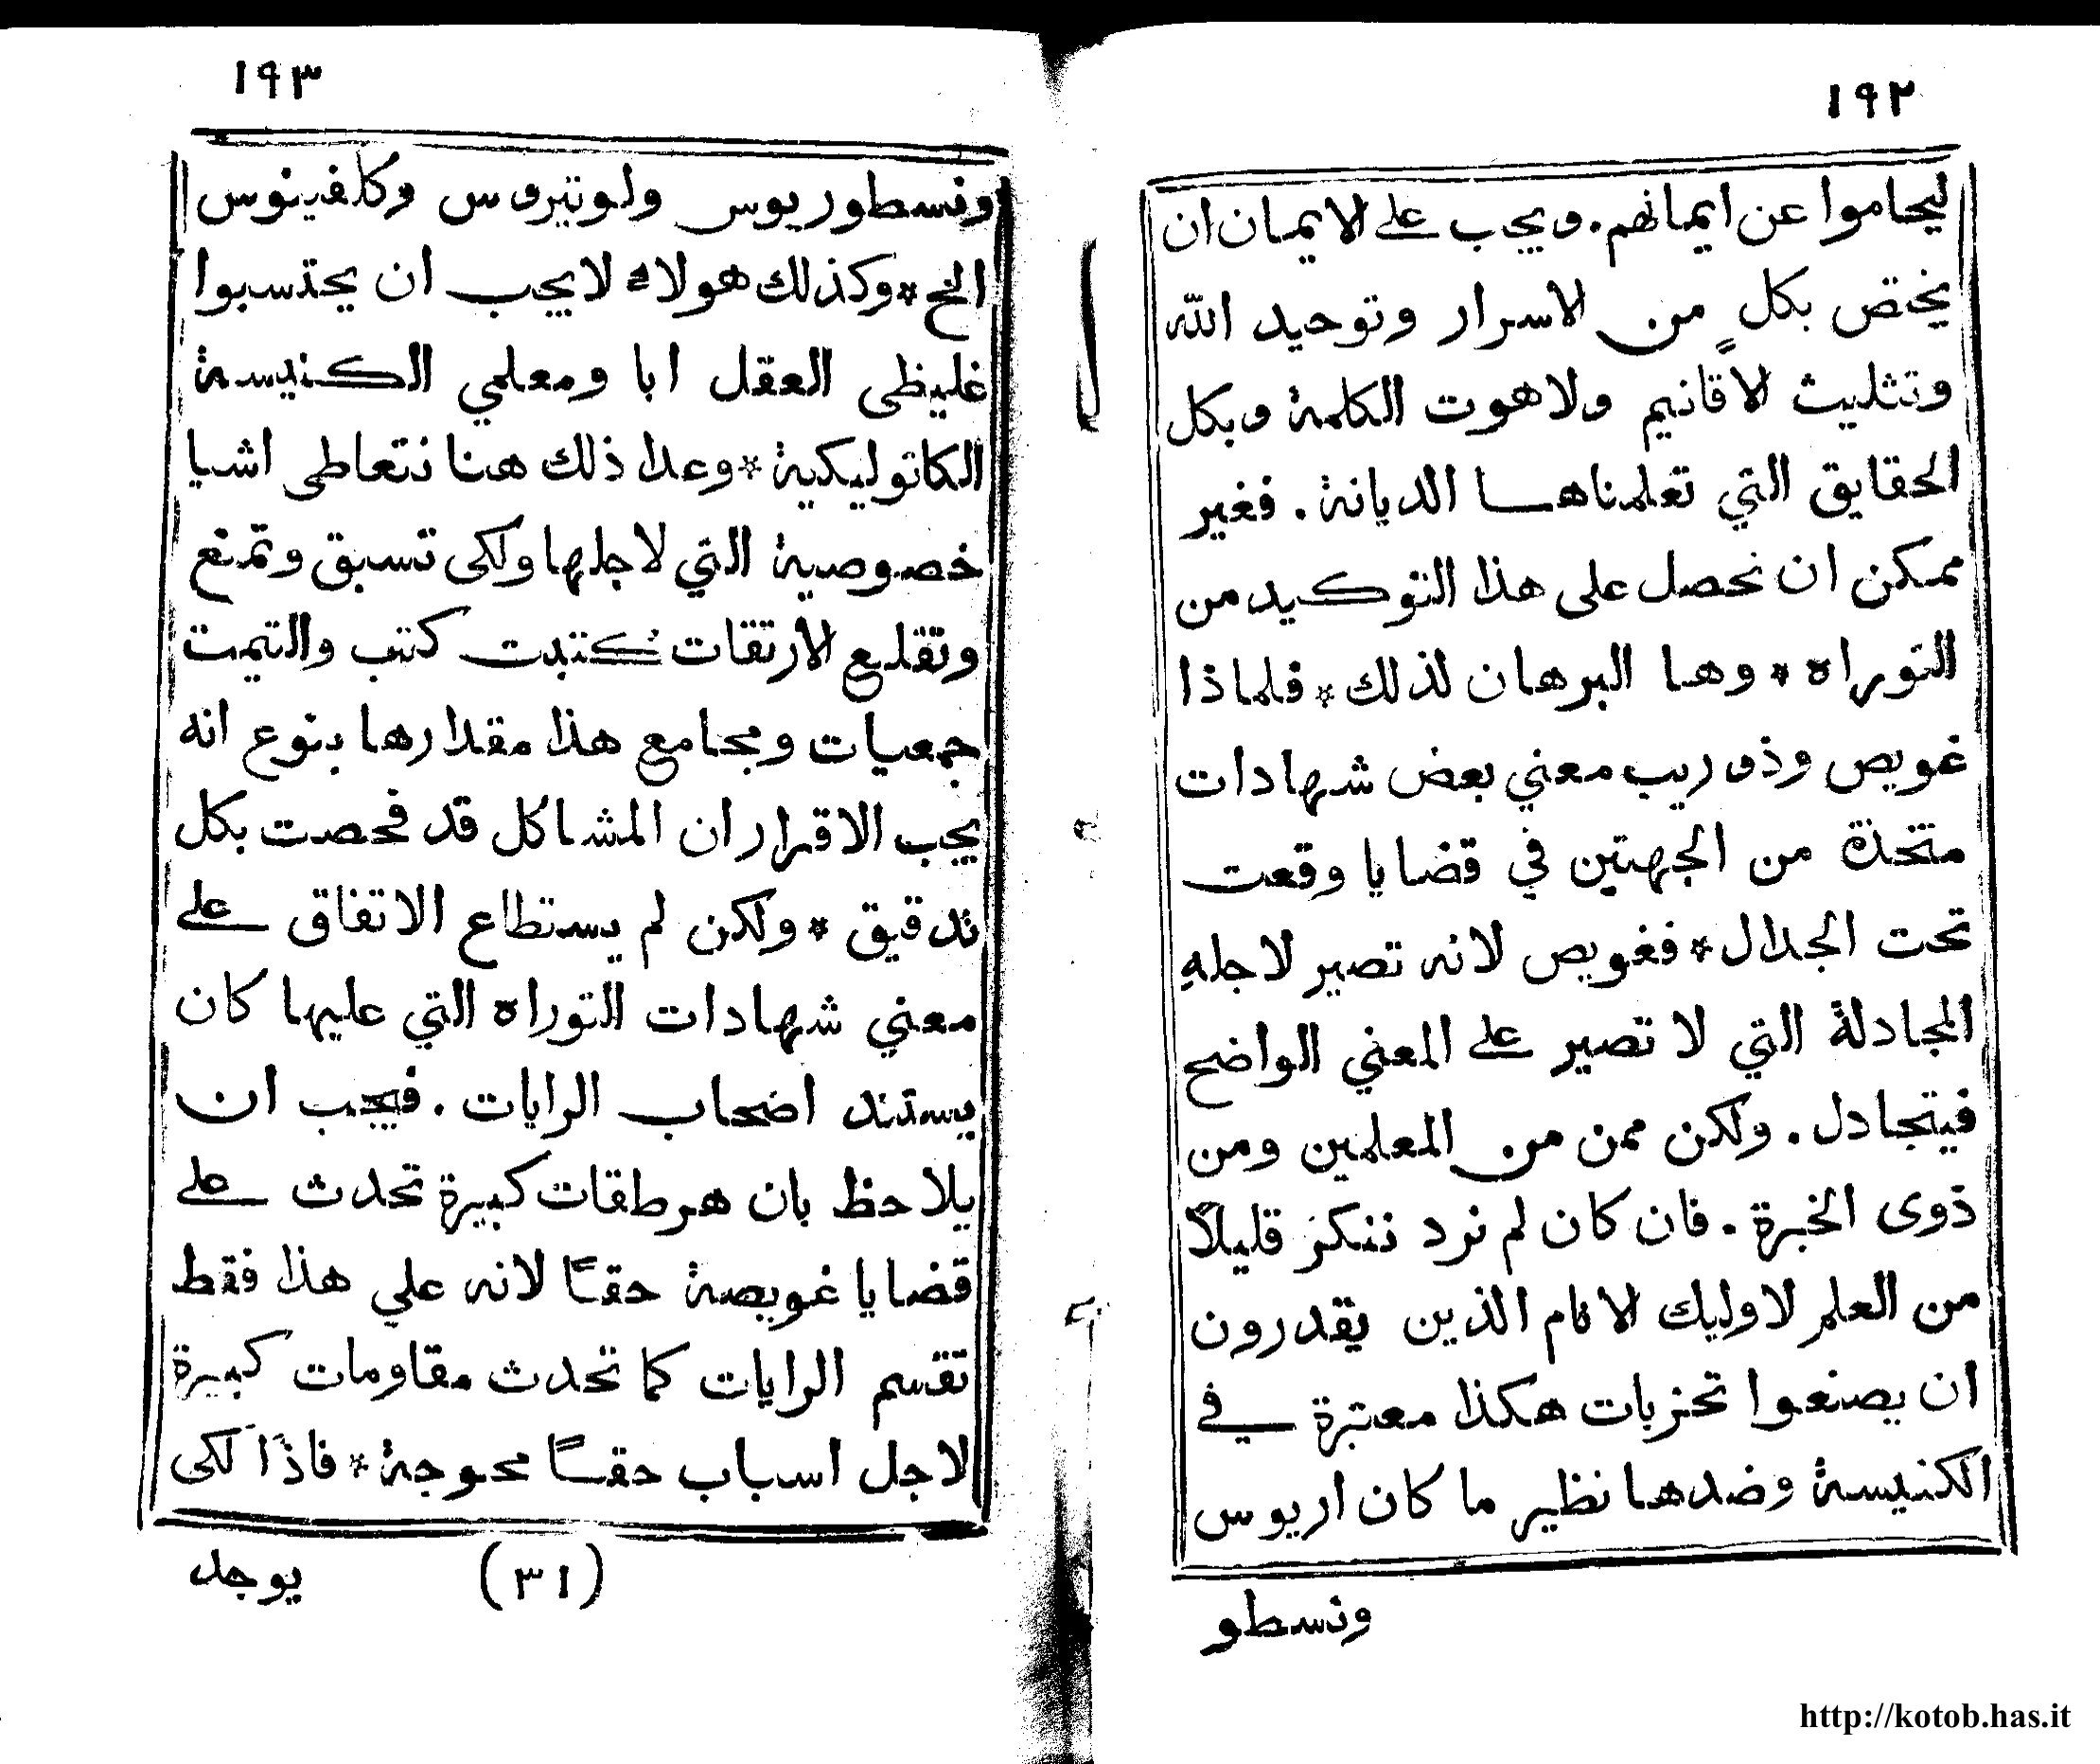 ١٩٢
ليحاموا عن ايمانهم. ويجب على الايمان ان
يختص بكلٍ من الاسرار وتوحيد الله
وتثليث الاقانيم ولاهوت الكلمة وبكل
الحقايق التي تعلمناها الديانة. فغير
ممكن ان نحصل على هذا التوكيد من
التوراه * وها البرهان لذلك * فلماذا
غويص وذو ريب معني بعض شهادات
متخذة من الجهتين في قضايا وقعت
تحت الجدال * فغويص لانه تصير لاجلهِ
المجادلة التي لا تصير على المعني الواضح
فيتجادل. ولكن ممن من المعلمين ومن
ذوى الخبرة. فان كان لم نرد ننكر قليلاً
من العلم لاوليك الانام الذين يقدرون
ان يصنعوا تحزبات هكذا معتبرة في
الكنيسة وضدها نظير ما كان اريوس
ونسطو
١٩٣
ونسطوريوس ولوتيروس وكلفينوس
الخ * وكذلك هولاء لا يجب ان يحتسبوا
غليظى العقل ابا ومعلمي الكنيسة
الكاتوليكية * وعدا ذلك هنا نتعاطى اشيا
خصوصية التي لاجلها ولكى تسبق وتمنع
وتقلع الارتقات كتبت كتب والتيمت
جمعيات ومجامع هذا مقدارها بنوع انه
يجب الاقرار ان المشاكل قد فحصت بكل
تدقيق * ولكن لم يستطاع الاتفاق على
معني شهادات التوراه التي عليها كان
يستند اضحاب الرايات. فيجب ان
يلاحظ بان هرطقات كبيرة تحدث على
قضايا غويصة حقاً لانه علي هذا فقط
تقسم الرايات كما تحدث مقاومات كبيرة
لاجل اسباب حقاً محوجة * فاذاً لكى
(٣١)
يوجد
http://kotob.has.it